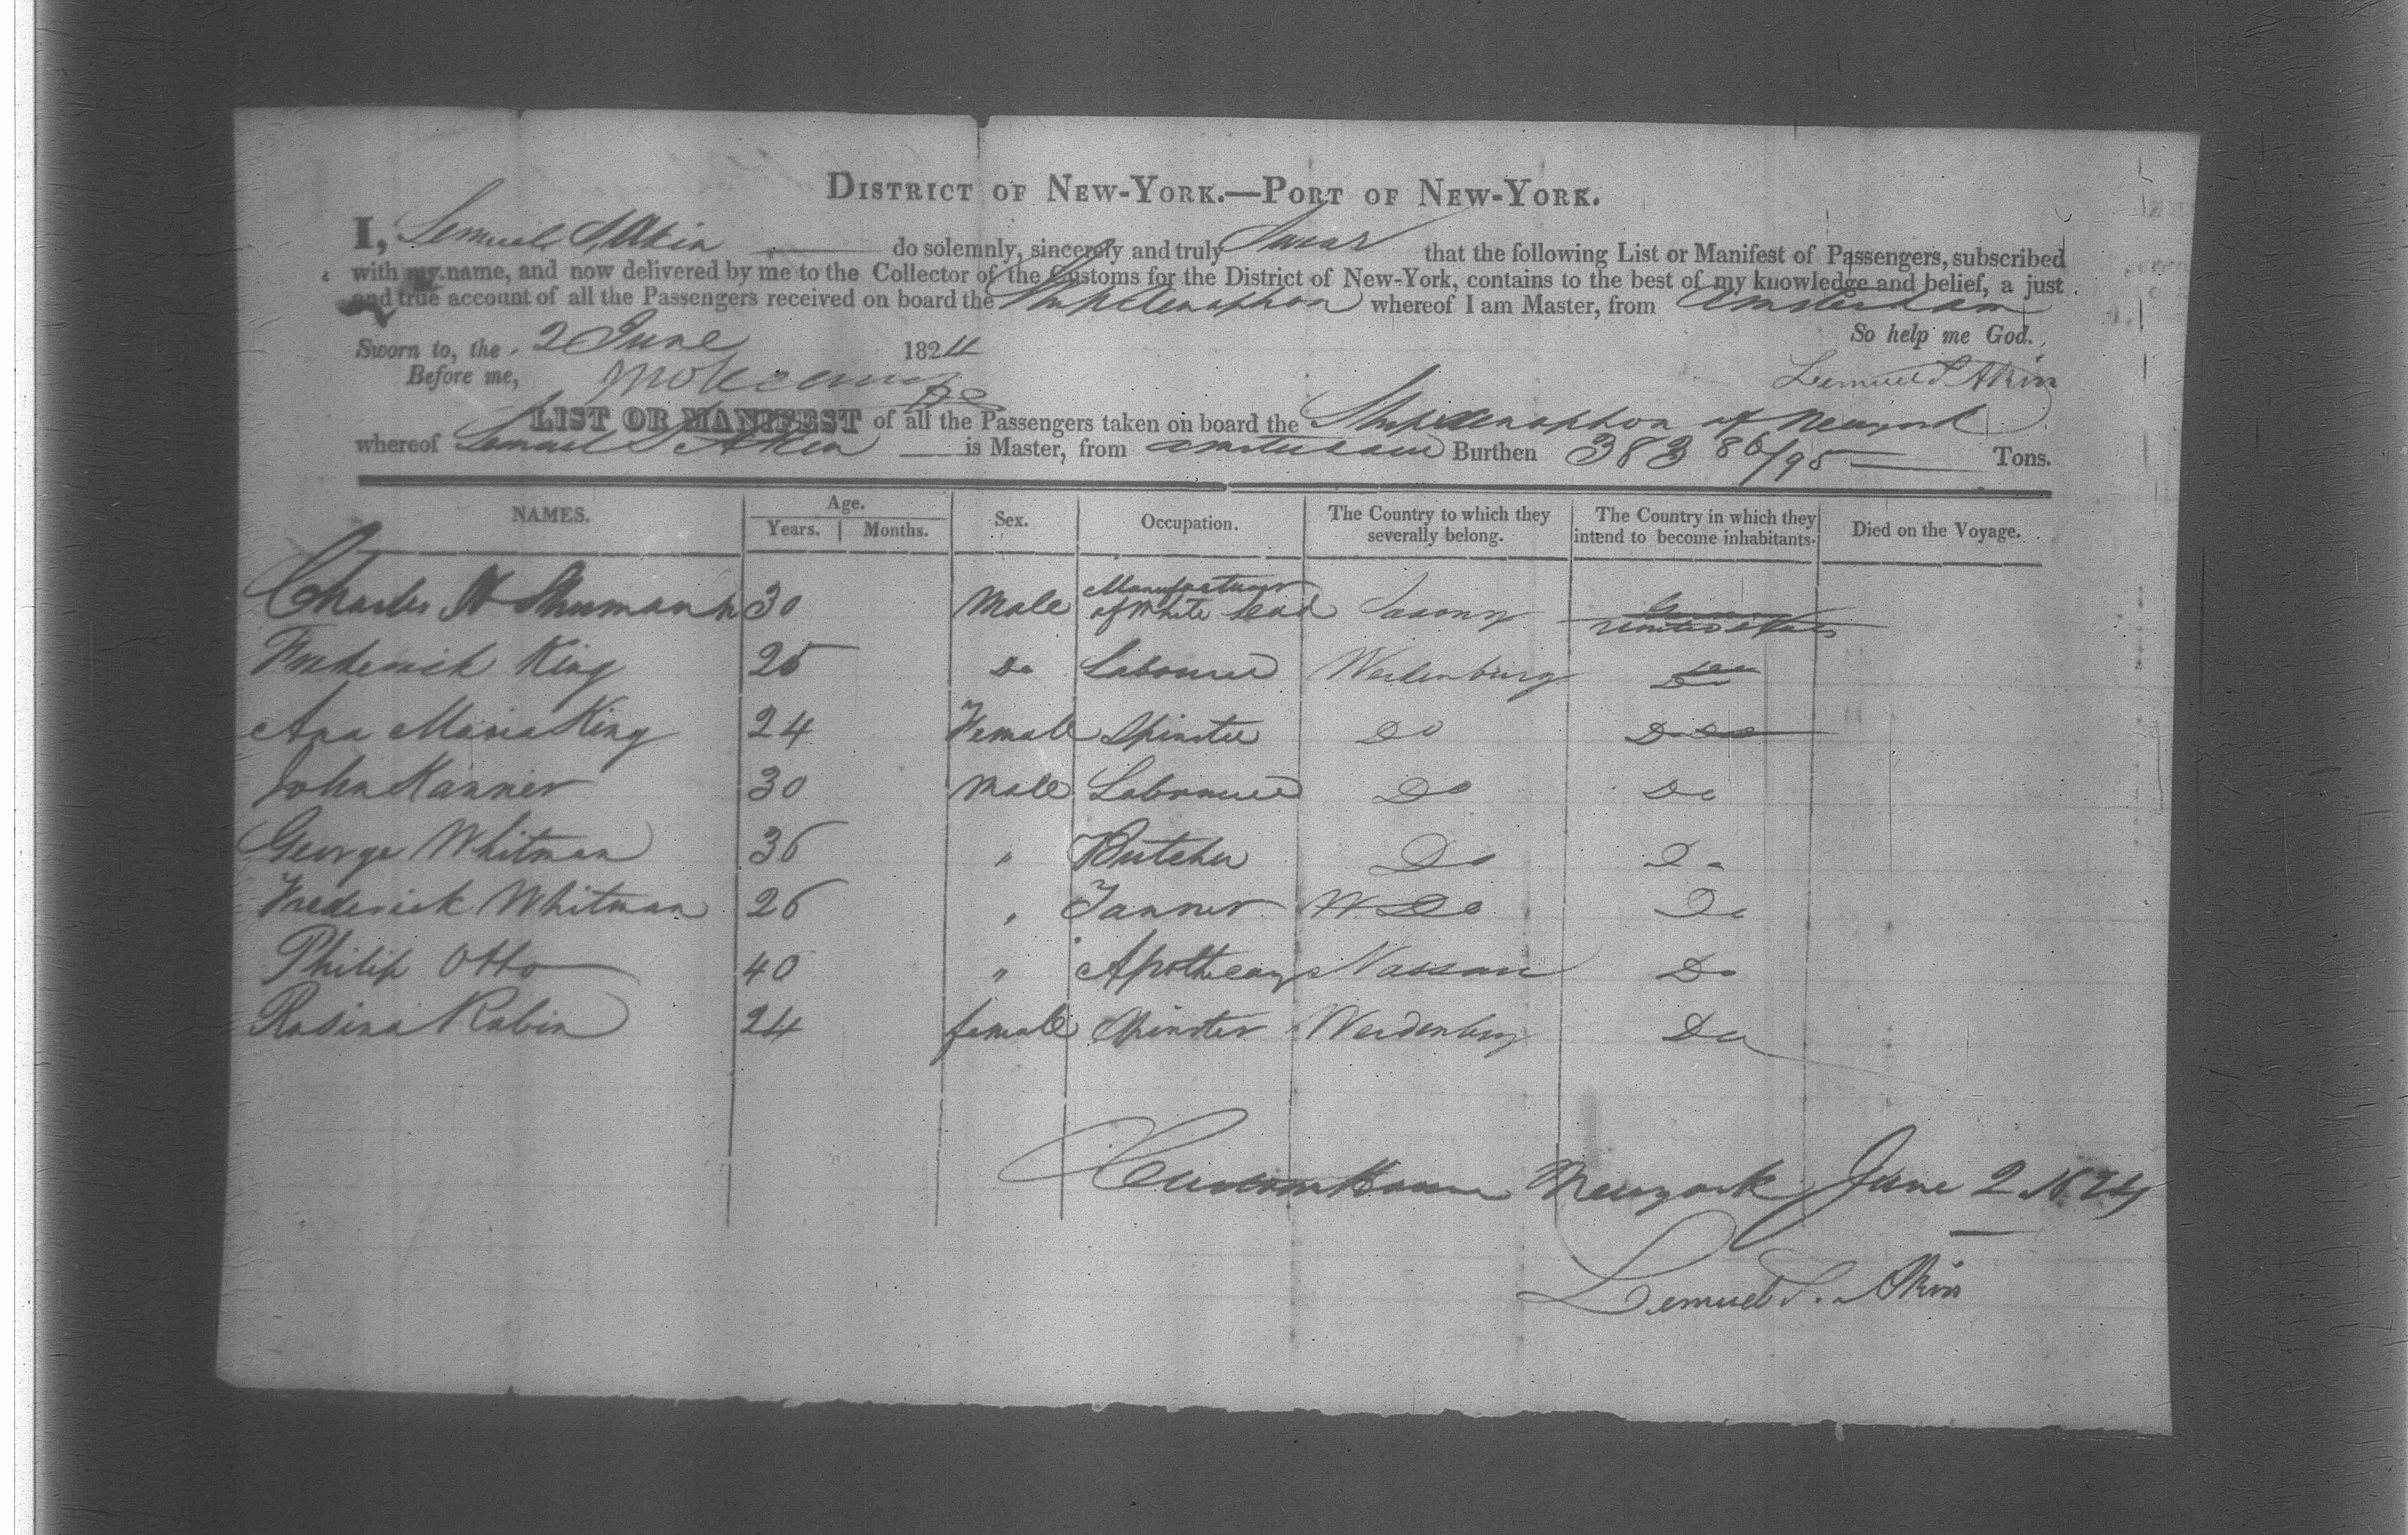 DISTRICT OF NEW-YORK.—PORT OF NEW-YORK.
I, Lemuel S Akin do solemnly, sincerely and truly Swear that the following List or Manifest of Passengers, subscribed
with my name, and now delivered by me to the Collector of the Customs for the District of New-York, contains to the best of my knowledge and belief, a just
and true account of all the Passengers received on board the Ship Xenophon whereof I am Master, from Amsterdam
So help me God.
Sworn to, the 2 June 1824
Before me, Lemuel S Akin
LIST OR MANIFEST of all the Passengers taken on board the Ship Xenophon of Newyork
whereof Lemuel S Akin is Master, from Amsterdam Burthen 383 86/95 Tons.
NAMES. Age. Years. Months. Sex. Occupation. The Country to which they severally belong. The Country in which they intend to become inhabitants. Died on the Voyage.
Charles H Shumann 30 Male Manufacturer of White Lead Saxony United States
Frederick King 25 Do Labourer Werdenburg Do
Ana Maria King 24 Female Spinster Do Do
John Kanner 30 Male Labourer Do Do
George Whitman 36 " Butcher Do Do
Frederick Whitman 26 " Tanner Do Do
Philip Otto 40 " Apothecary Nassau Do
Rosina Rabin 24 female Spinster Werdenburg Do
Custom House Newyork June 2 1824
Lemuel S. Akin